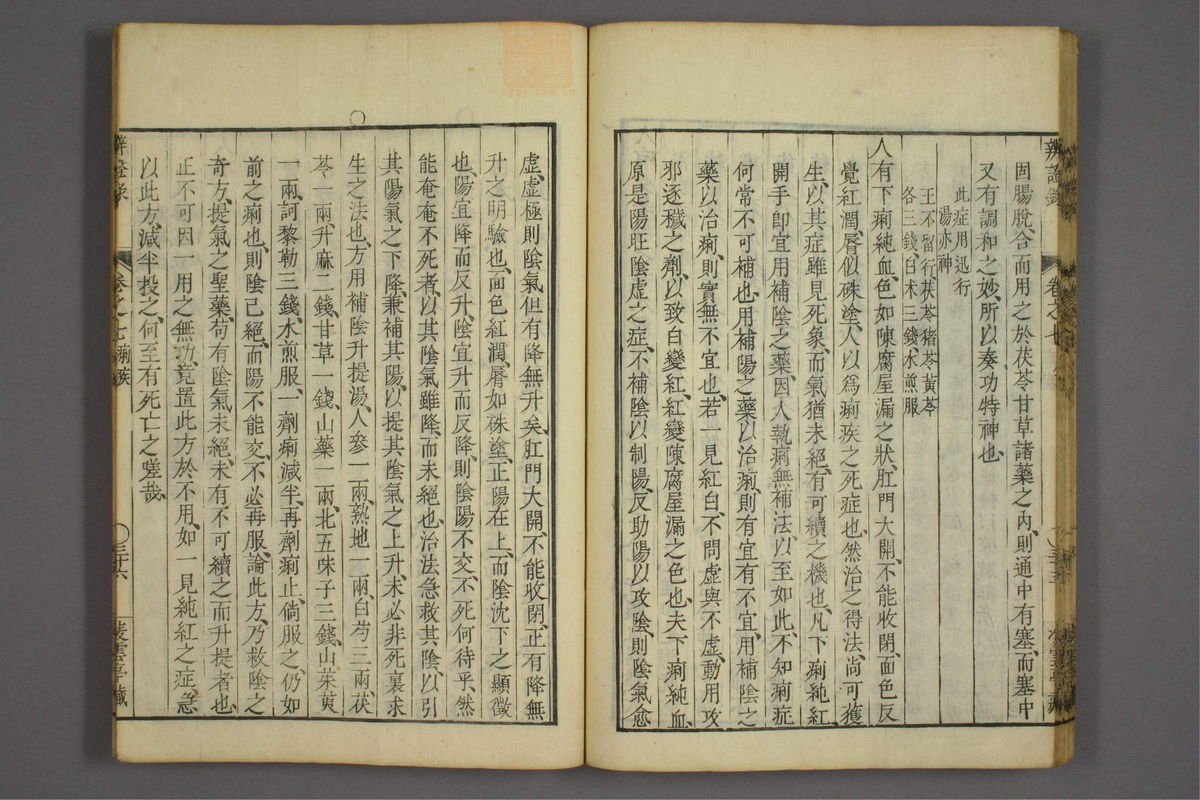 固腸脫合而用之於茯苓甘草諸藥之內則通中有塞而塞中
又有調和之妙所以奏功特神也
此症用迅行
湯亦神
王不留行茯苓猪苓黃芩
各三錢白术三錢水煎服
人有下痢純血色如陳腐屋漏之狀肛門大開不能收閉面色反
覺紅潤唇似硃塗人以爲痢疾之死症也然治之得法尚可獲
生以其症雖見死象而氣猶未絕有可續之機也凡下痢純紅
開手即宜用補陰之藥因人執痢無補法以至如此不知痢症
何常不可補也用補陽之藥以治痢則有宜有不宜用補陰之
藥以治痢則實無不宜也若一見紅白不問虛與不虛動用攻
邪逐穢之劑以致白變紅紅變陳腐屋漏之色也夫下痢純血
原是陽旺陰虛之症不補陰以制陽反助陽以攻陰則陰氣愈
辨證錄 卷之七 三十五
虛虛極則陰氣但有降無升矣肛門大開不能收閉正有降無
升之明驗也面色紅潤脣如硃塗正陽在上而陰沈下之顯徵
也陽宜降而反升陰宜升而反降則陰陽不交不死何待乎然
能奄奄不死者以其陰氣雖降而未絕也治法急救其陰以引
其陽氣之下降兼補其陽以提其陰氣之上升未必非死裏求
生之法也方用補陰升提湯人參一兩熟地一兩白芍三兩茯
苓一兩升麻二錢甘草一錢山藥一兩北五味子三錢山茱萸
一兩訶黎勒三錢水煎服一劑痢減半再劑痢止倘服之仍如
前之痢也則陰已絕而陽不能交不必再服論此方乃救陰之
奇方提氣之聖藥苟有陰氣未絕未有不可續之而升提者也
正不可因一用之無功竟置此方於不用如一見純紅之症急
以此方減半投之何至有死亡之嗟哉
辨證錄 卷之七 痢疾 三十六